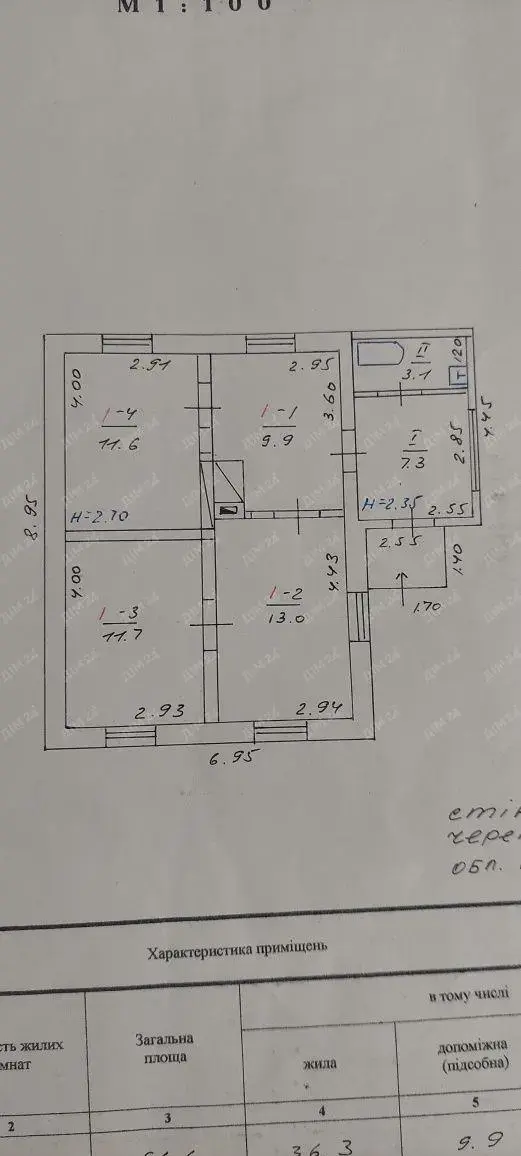 М 1 : 100
2.91
2.95
II
3.1
120
Т
4.00
3.60
I-4
11.6
I-1
9.9
I
7.3
2.85
4.45
H=2.70
H=2.35
2.55
8.95
2.55
1.40
4.00
4.43
1.70
I-3
11.7
I-2
13.0
2.93
2.94
6.95
обл.
Характеристика приміщень
в тому числі
Загальна
площа
жила
допоміжна
(підсобна)
2
3
4
5
36.3
9.9
ДІМ24